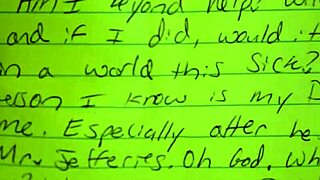 Am I beyond help?
and if I did, would it
in a world this sick?
person I know is my
me. Especially after he
Mr. Jefferies. Oh God, wh